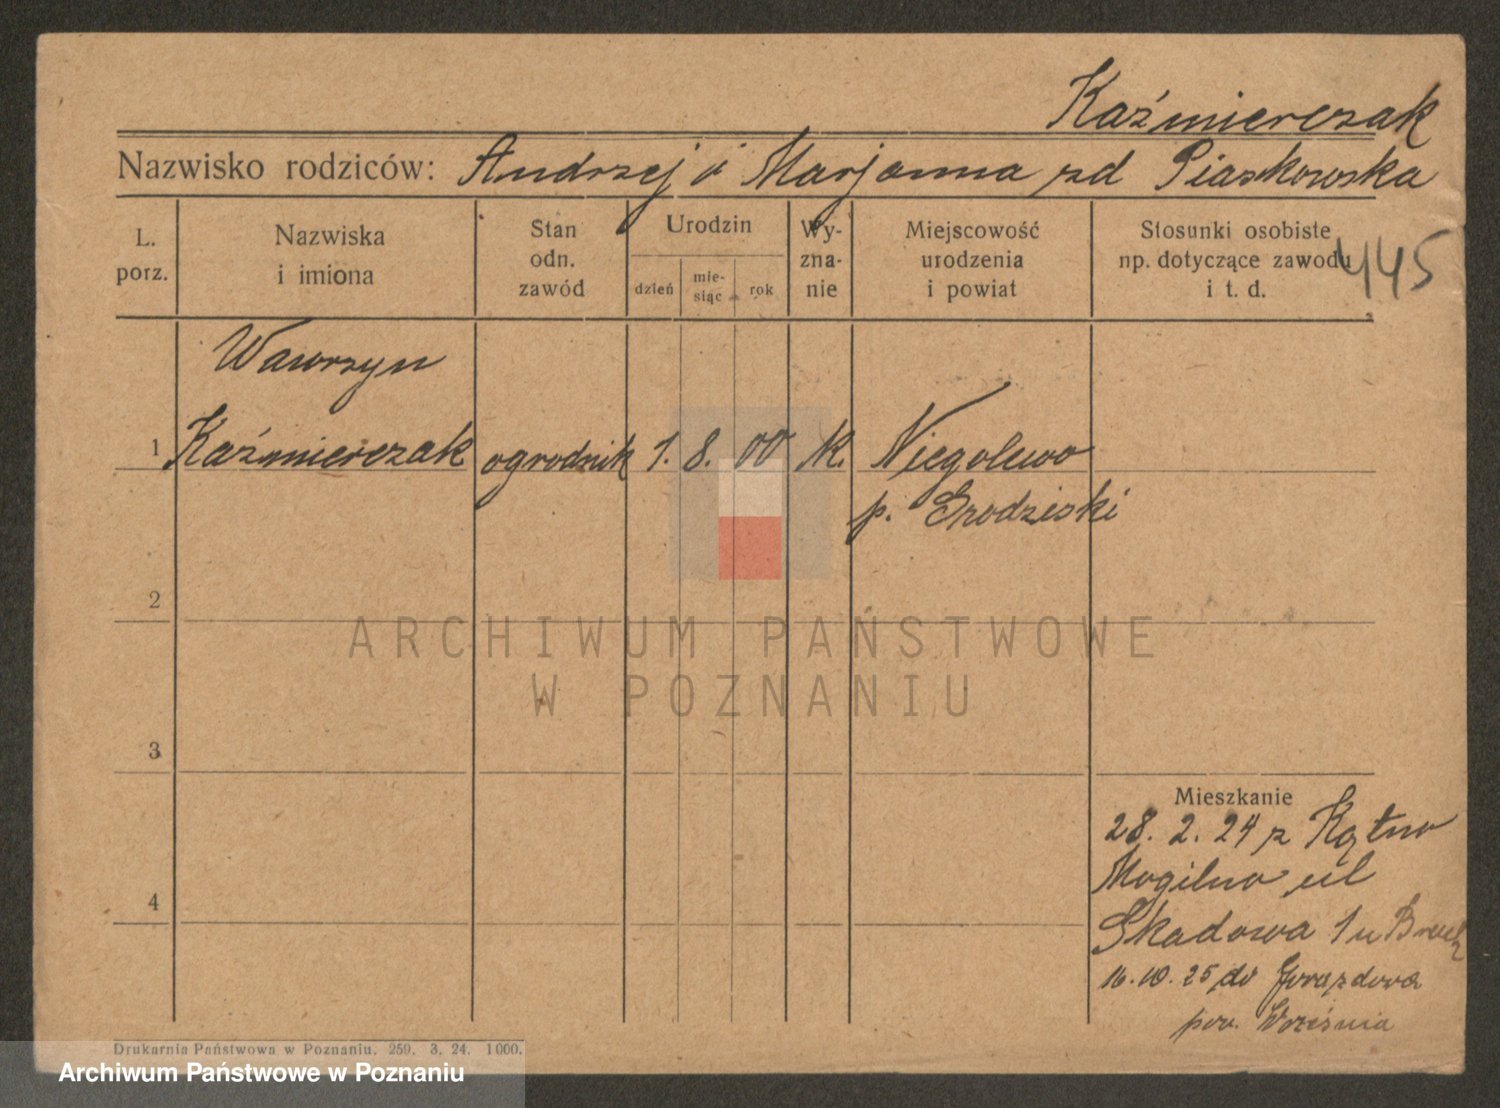 Kaźmierczak
Nazwisko rodziców: Andrzej i Marjanna zd Piaskowska
L. porz.
Nazwiska i imiona
Stan odn. zawód
Urodzin
dzień
mie-
siąc
rok
Wy-
zna-
nie
Miejscowość
urodzenia
i powiat
Stosunki osobiste
np. dotyczące zawodu
i t. d.
445
Wawrzyn
1 Kaźmierczak ogrodnik 1. 8. 00 k. Niegolewo
p. Grodziski
2
3
4
Mieszkanie
28. 2. 24 z
Mogilno ul
1 u
16.10.25 do Gwazdowa
pow. Września
Drukarnia Państwowa w Poznaniu. 259. 3. 24. 1000.
ARCHIWUM PAŃSTWOWE
W POZNANIU
Archiwum Państwowe w Poznaniu